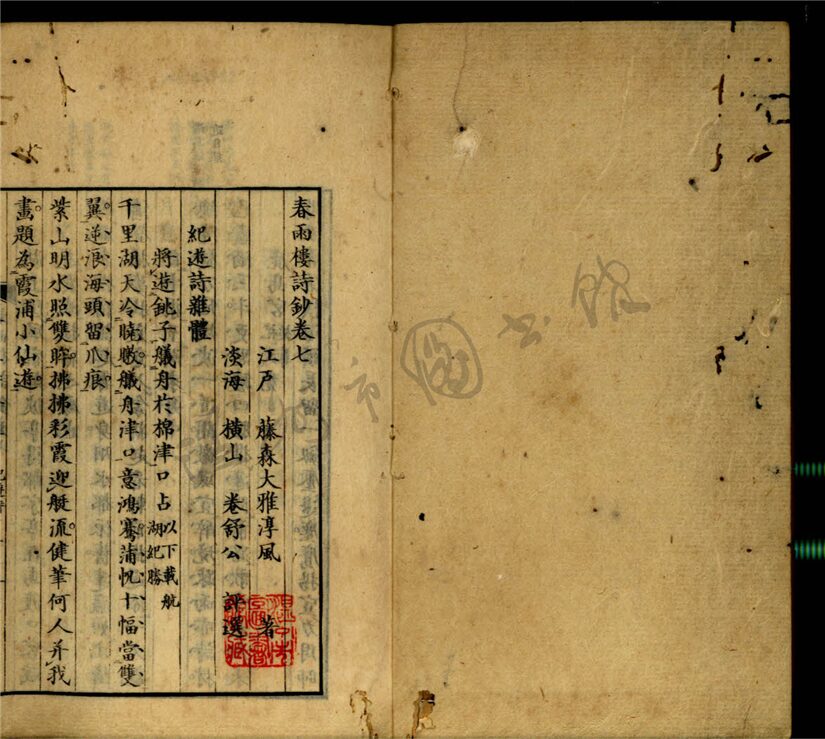 春雨樓詩鈔卷七
江戶 藤森大雅淳風 著
淡海 橫山 卷舒公 評選
紀遊詩雜體
將遊銚子艤舟於棉津口占 以下載航湖紀勝
千里湖天冷曉暾艤舟津口意鴻騫蒲帆十幅當雙
翼逆浪海頭留爪痕
紫山明水照雙眸拂拂彩霞迎艇流健筆何人并我
畫題為霞浦小仙遊
市圖書館